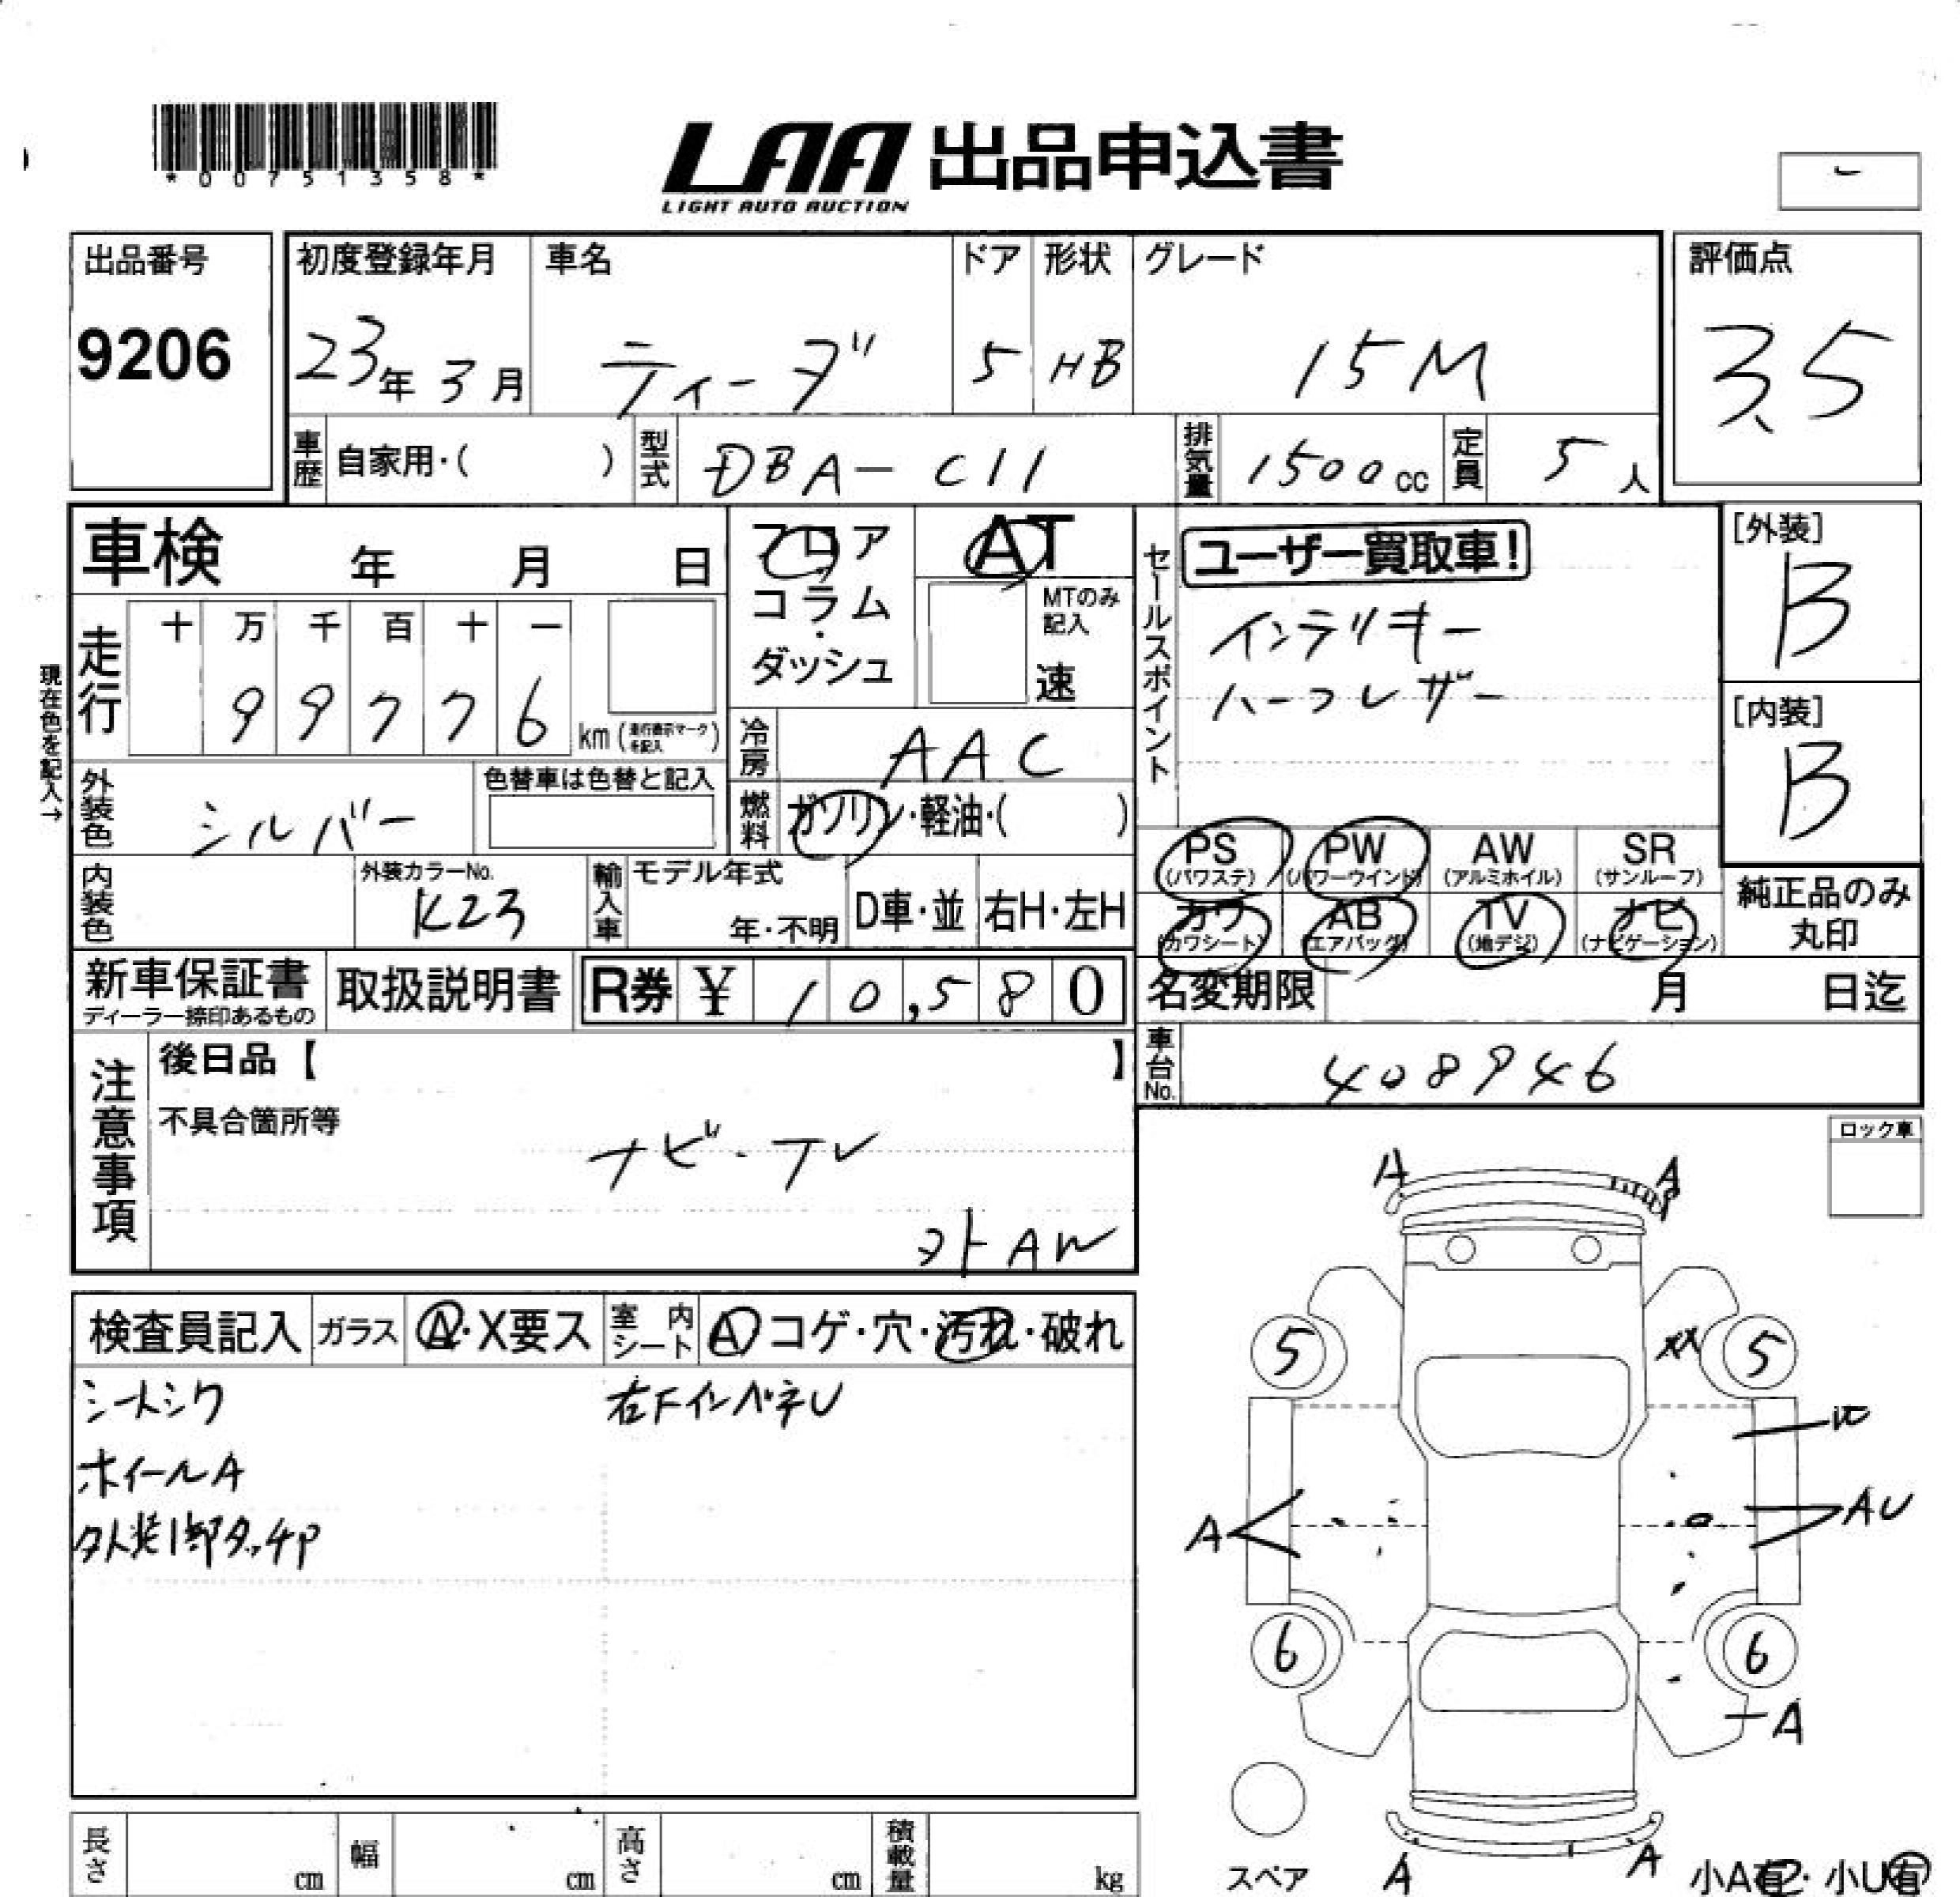 *00751358*
LAA 出品申込書
LIGHT AUTO AUCTION
出品番号
9206
初度登録年月
23年 3月
車名
ティーダ
ドア
5
形状
HB
グレード
15M
評価点
3.5
車歴 自家用・( )
型式 DBA-C11
排気量 1500cc
定員 5人
車検 年 月 日
フロア
コラム
・
ダッシュ
AT
MTのみ
記入
速
セールスポイント
ユーザー買取車!
インテリキー
ハーフレザー
[外装]
B
[内装]
B
現在色を記入→
走行
十 万 千 百 十 一
9 9 7 7 6 km
冷房 AAC
外装色 シルバー
色替車は色替と記入
燃料 ガソリン・軽油・( )
内装色
外装カラーNo.
K23
輸入車
モデル年式
年・不明
D車・並
右H・左H
PS
(パワステ)
PW
(パワーウインド)
AW
(アルミホイル)
SR
(サンルーフ)
カワ
(カワシート)
AB
(エアバッグ)
TV
(地デジ)
ナビ
(ナビゲーション)
純正品のみ
丸印
新車保証書
ディーラー捺印あるもの
取扱説明書
R券 ¥ 10,580
名変期限 月 日迄
車台No. 408946
注意事項
後日品【 】
不具合箇所等
ナビ・TV
外AW
ロック車
検査員記入
ガラス A・X要ス
室内シート A コゲ・穴・汚れ・破れ
シートシワ
右FインパネU
ホイールA
外装1部タッチP
A A
5 XX 5
A AU
6 6
A
A A
スペア
小A有・小U有
長さ cm
幅 cm
高さ cm
積載量 kg